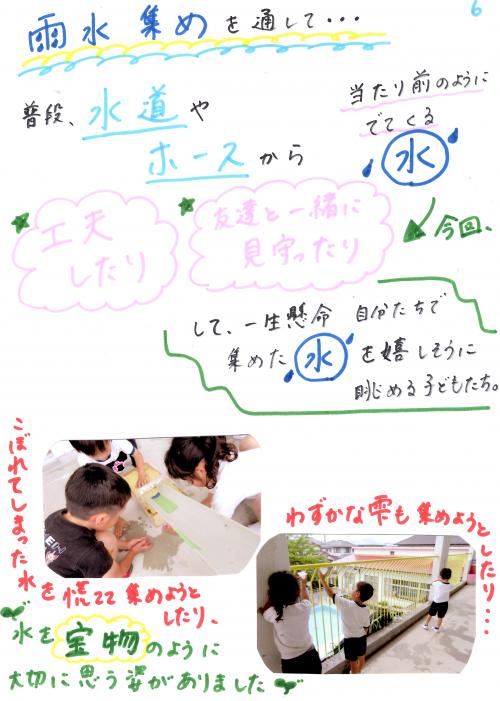 6
雨水集めを通して・・・
普段、水道や
ホースから
当たり前のように
でてくる
水
今回、
工夫
したり
友達と一緒に
見守ったり
して、一生懸命 自分たちで
集めた 水 を嬉しそうに
眺める子どもたち。
こぼれてしまった水
を慌てて集めようと
したり、
わずかな雫も集めようとしたり・・・
水を宝物のように
大切に思う姿がありました